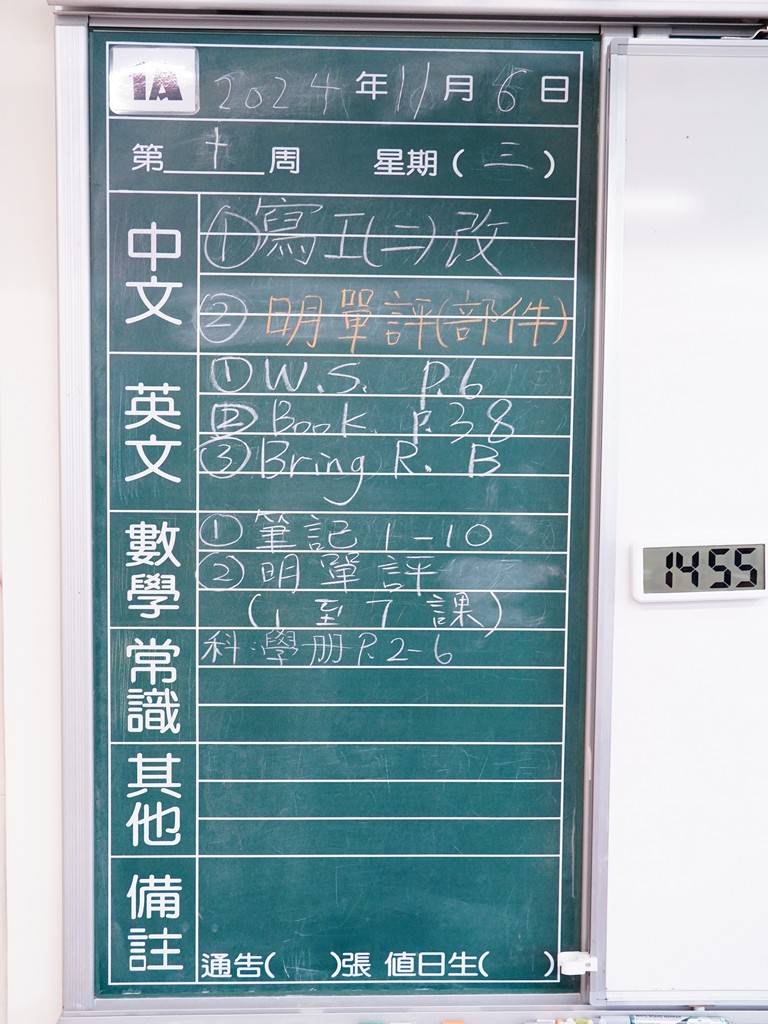 1A 2024年11月6日
第十周 星期(三)
中文
①寫工(二)改
②明單評(部件)
英文
①W.S. P.6
②Book P.38
③Bring R. B
數學
①筆記1-10
②明單評
(1至7課)
常識
科學册P.2-6
其他
備註
通告( )張 值日生( )
14:55